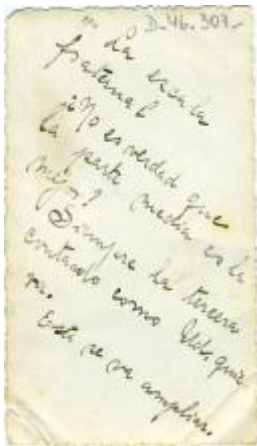 D-46.307.-
"La escala
fraternal
¿No es verdad que
la parte media es la
mejor?
Siempre la tercera
contando como Uds. quie
ran.
Esta se va ampliar.